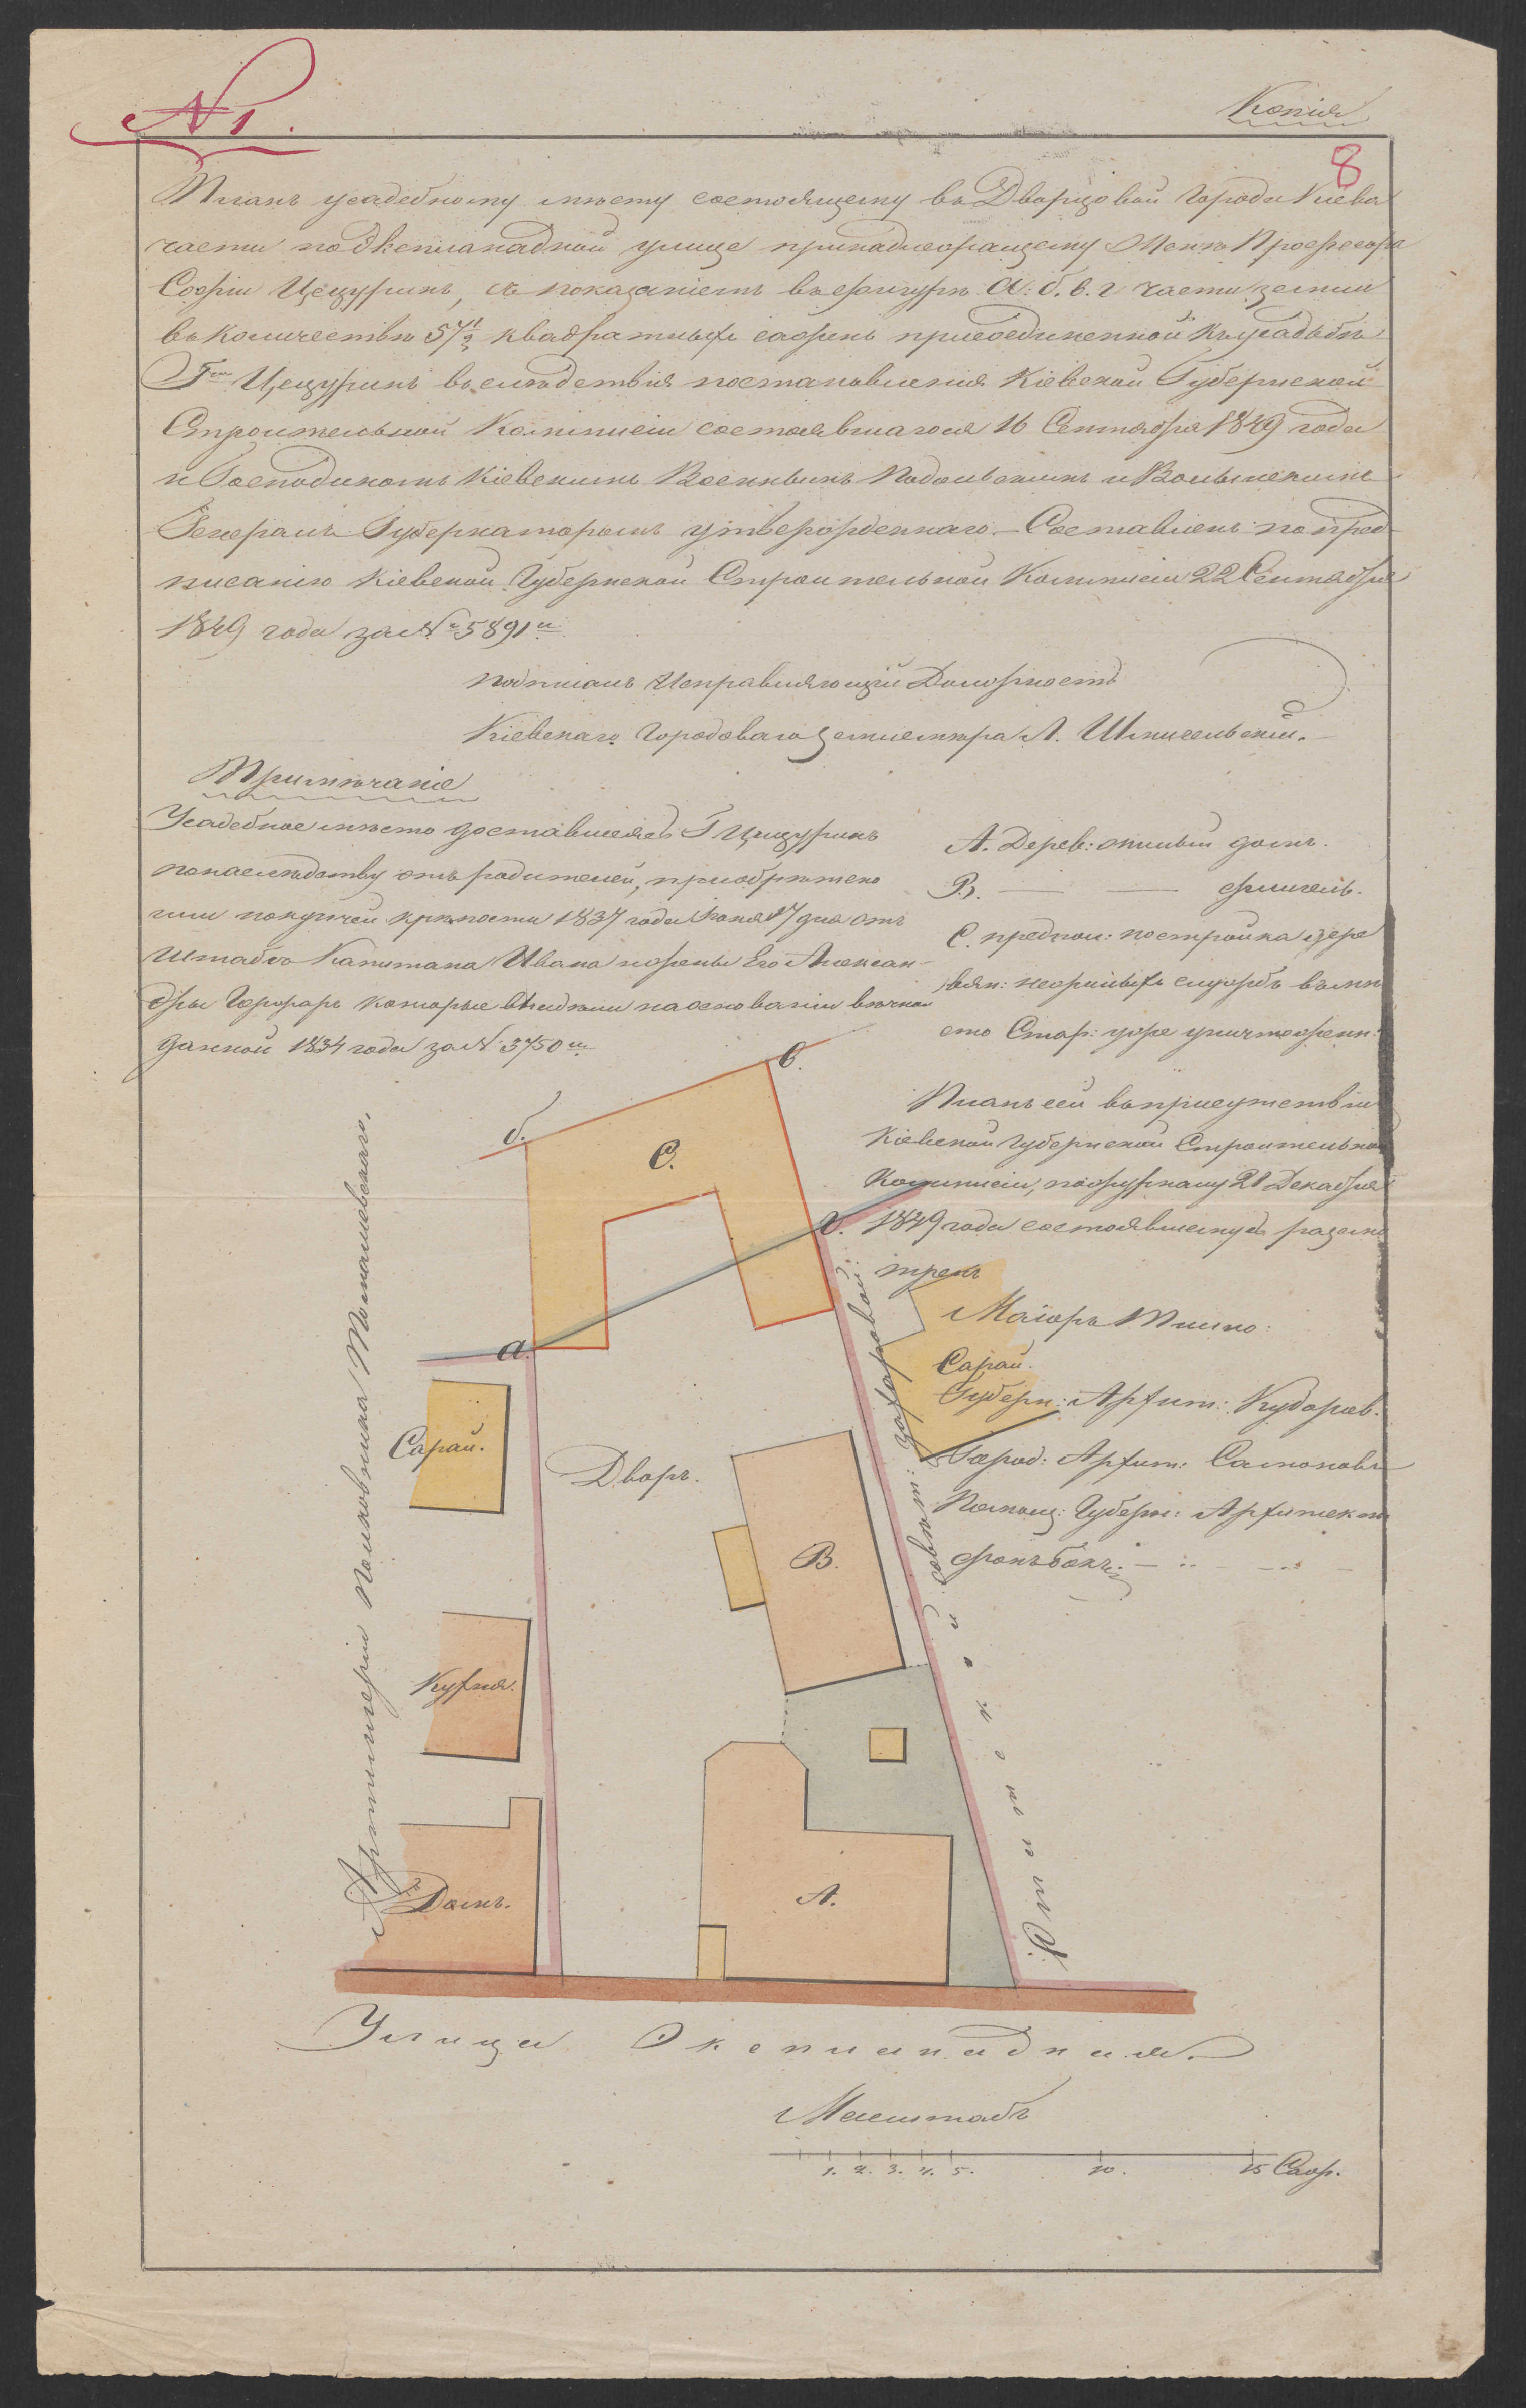 № 1.
Копія
8
Планъ усадебному мѣсту состоящему въ Дворцовой города Кіева
части подъ Еспланадной улице принадлежащему Женѣ Профессора
Софіи Цецуринъ, съ показаніемъ въ фигурѣ а. б. в. г части земли
въ количествѣ квадратныхъ сажень присоединенной къ усадьбѣ
Г-жи Цецуринъ въ слѣдствія постановленія Кіевской Губернской
Строительной Коммисіи состоявшагося 16 Сентября 1849 года
и Господиномъ Кіевскимъ Военнымъ Подольскимъ и Волынскимъ
Генералъ Губернаторомъ утвержденнаго. – Составленъ по пред-
писанію Кіевской Губернской Строительной Коммисіи 22 Сентября
1849 года за № 5891м
подписалъ Исправляющій Должность
Кіевскаго Городоваго землемѣра Л.
Примѣчаніе
Усадебное мѣсто доставшееся Г Цецуринъ
по наслѣдству отъ родителей, приобрѣтено
ими по купчей крѣпости 1837 года дня отъ
Штабсъ Капитана Ивана и жены Его Алексан-
дры которые владѣли на основаніи
данной 1834 года за № 3750м
А. Дерев: жилый домъ.
В. — — флигель.
С. предпол: постройка дере
вян: нежилыхъ службъ въ мѣ
сто Стар: уже уничтожен:
Планъ сей въ присутствіи
Кіевской Губернской Строительной
Коммисіи, по журналу 21 Декабря
1849 года состоявшемуся разсмо
трѣнъ
Маіоръ
Губерн: Архит:
Город: Архит:
Помощ: Губерн: Архитект
б.
в.
С.
г.
а.
Сарай.
Сарай.
Дворъ.
В.
Кухня.
Домъ.
А.
Артиллеріи Полковника Томашевскаго.
Улица Эспланадная.
Масштабъ
1. 2. 3. 4. 5. 10. 15 Саж.